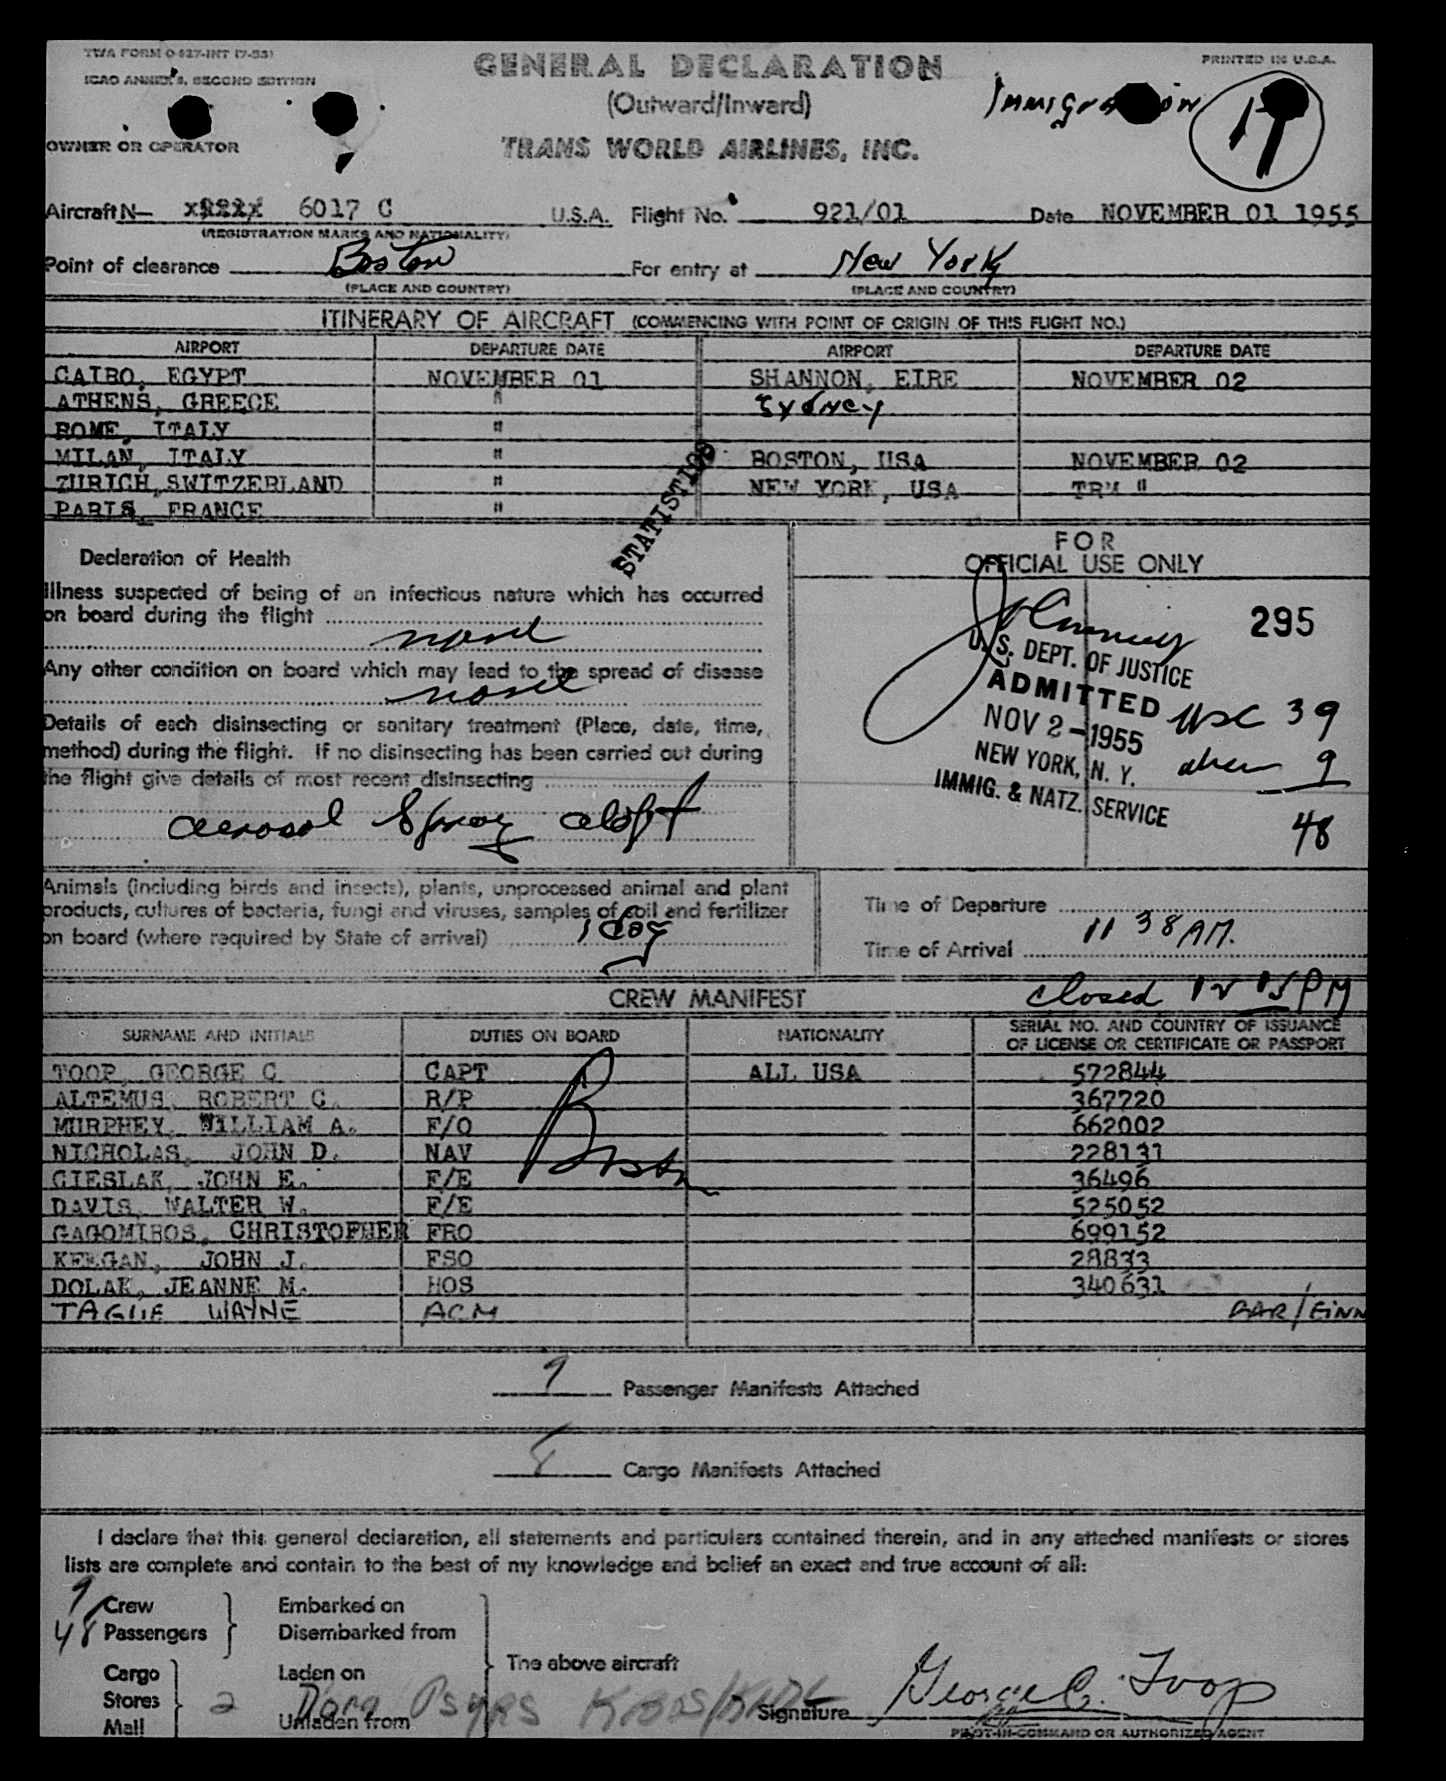 TWA FORM O-427-INT (7-53)
ICAO ANNEX 9, SECOND EDITION
GENERAL DECLARATION
PRINTED IN U.S.A.
(Outward/Inward)
Immigration
OWNER OR OPERATOR
TRANS WORLD AIRLINES, INC.
Aircraft N— 6017 C U.S.A. Flight No. 921/01 Date NOVEMBER 01 1955
(REGISTRATION MARKS AND NATIONALITY)
Point of clearance Boston For entry at New York
(PLACE AND COUNTRY) (PLACE AND COUNTRY)
ITINERARY OF AIRCRAFT (COMMENCING WITH POINT OF ORIGIN OF THIS FLIGHT NO.)
AIRPORT DEPARTURE DATE AIRPORT DEPARTURE DATE
CAIRO, EGYPT NOVEMBER 01 SHANNON, EIRE NOVEMBER 02
ATHENS, GREECE " Sydney
ROME, ITALY "
MILAN, ITALY " BOSTON, USA NOVEMBER 02
ZURICH, SWITZERLAND " NEW YORK, USA TRM "
PARIS, FRANCE "
STATISTICS
Declaration of Health
FOR
OFFICIAL USE ONLY
Illness suspected of being of an infectious nature which has occurred
on board during the flight
none
295
Any other condition on board which may lead to the spread of disease
none
U.S. DEPT. OF JUSTICE
ADMITTED
NOV 2 - 1955
NEW YORK, N. Y.
IMMIG. & NATZ. SERVICE
USC 39
alien 9
48
Details of each disinsecting or sanitary treatment (Place, date, time,
method) during the flight. If no disinsecting has been carried out during
the flight give details of most recent disinsecting
aerosol Spray aloft
Animals (including birds and insects), plants, unprocessed animal and plant
products, cultures of bacteria, fungi and viruses, samples of soil and fertilizer
on board (where required by State of arrival) 1 dog
Time of Departure
Time of Arrival 11 38 AM.
closed 12 15 PM
CREW MANIFEST
SURNAME AND INITIALS DUTIES ON BOARD NATIONALITY SERIAL NO. AND COUNTRY OF ISSUANCE
OF LICENSE OR CERTIFICATE OR PASSPORT
TOOP, GEORGE C CAPT ALL USA 572844
ALTEMUS, ROBERT C. R/P 367720
MURPHEY, WILLIAM A. F/O 662002
NICHOLAS, JOHN D. NAV 228131
CIESLAK, JOHN E. F/E 36496
DAVIS, WALTER W. F/E 525052
GAGOMIROS, CHRISTOPHER FRO 699152
KEEGAN, JOHN J. FSO 28833
DOLAK, JEANNE M. HOS 340631
TAGUE WAYNE ACM
Boston
9 Passenger Manifests Attached
8 Cargo Manifests Attached
I declare that this general declaration, all statements and particulars contained therein, and in any attached manifests or stores
lists are complete and contain to the best of my knowledge and belief an exact and true account of all:
9 Crew Embarked on
48 Passengers Disembarked from
The above aircraft
Cargo Laden on
Stores
Mail Unladen from
2
Signature George C. Toop
PILOT-IN-COMMAND OR AUTHORIZED AGENT